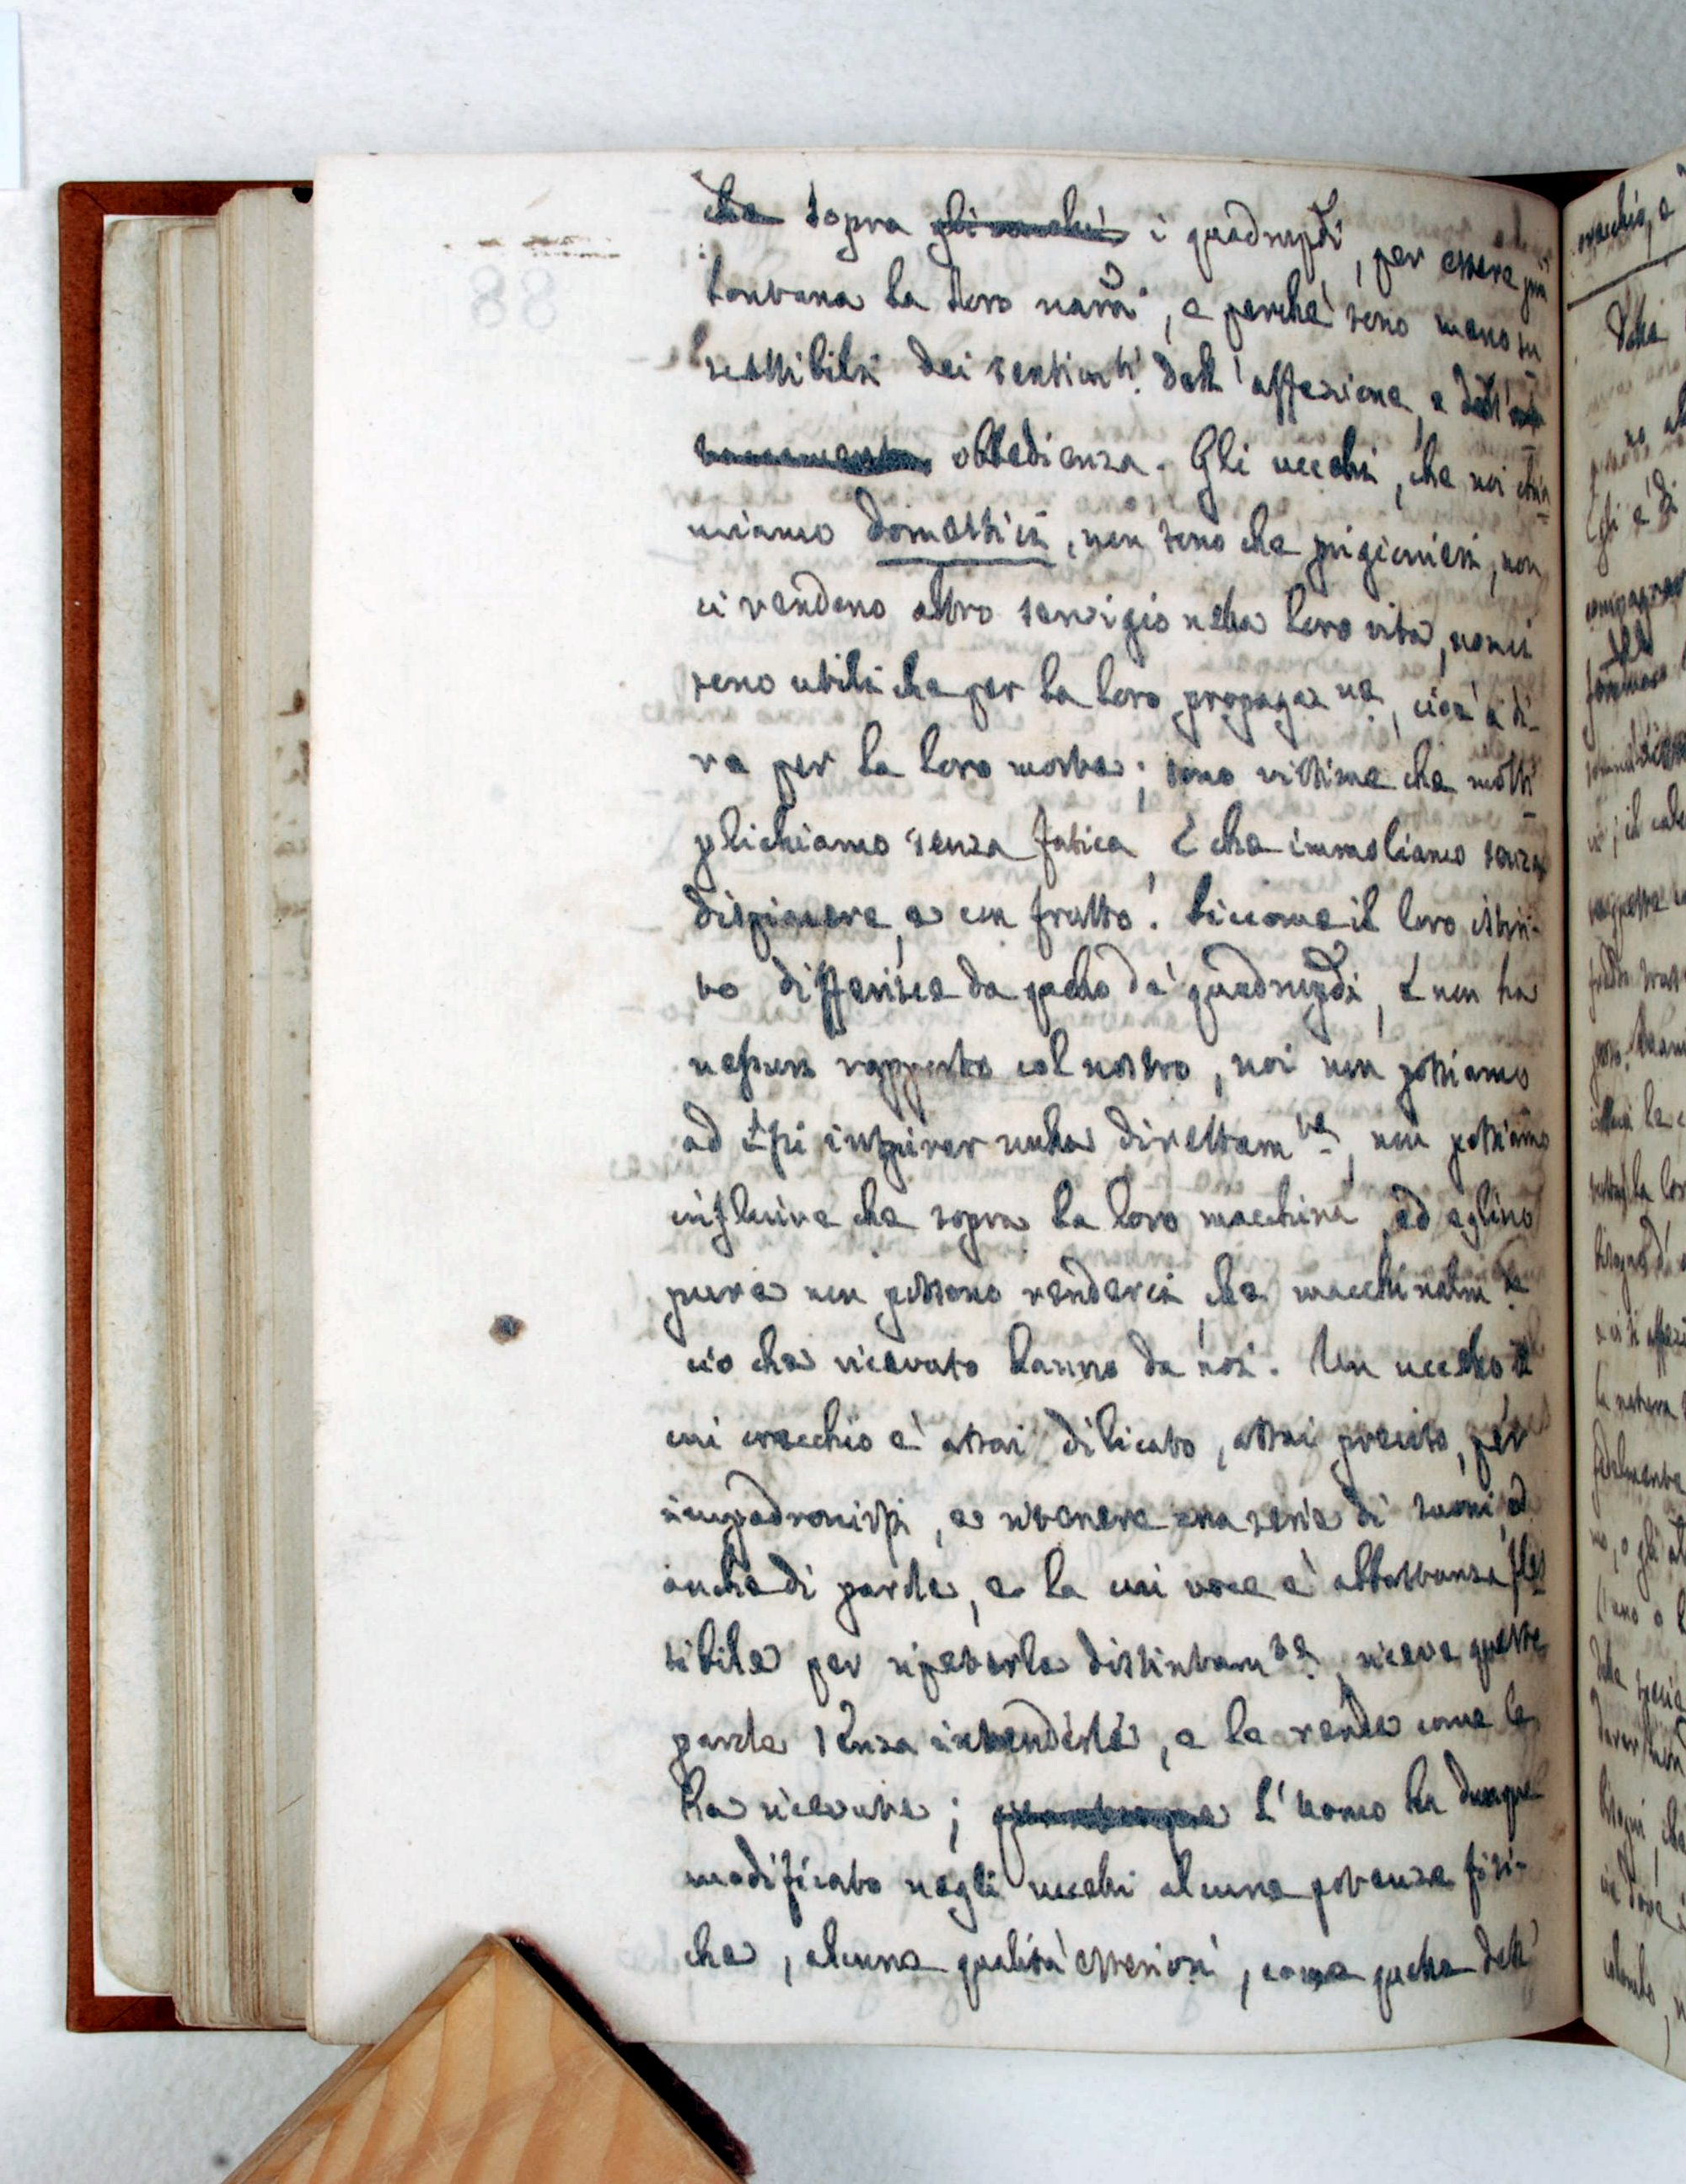 che sopra gli uccelli i quadrupedi, per essere più
lontana la loro natura, e perchè sono meno su
scettibili dei sentimti dell'affezione, e dell'
obbedienza. Gli uccelli, che noi chia
miamo domestici, non sono che prigionieri, non
ci rendono altro servigio nella loro vita, non ci
sono utili che per la loro propagazne, cioè a di-
re per la loro morte; sono vittime che molti
plichiamo senza fatica, e che immoliamo senza
dispiacere, e con frutto. Siccome il loro istin-
to differisce da quello de' quadrupedi, e non ha
nessun rapporto col nostro, noi non possiamo
ad essi inspirar nulla direttamte, non possiamo
influire che sopra la loro macchina, ed eglino
pure non possono renderci, che macchinalmte
ciò che ricevuto hanno da noi. Un uccello il
cui orecchio è assai dilicato, assai preciso, per
impadronirsi, e ritenere una serie di suoni, ed
anche di parole, e la cui voce è abbastanza fles
sibile per ripeterle distintamte, riceve queste
parole senza intenderle, e le rende come le
ha ricevute; quantunque L'uomo ha dunque
modificato negli uccelli alcune potenze fisi-
che, alcune qualità esteriori, come quelle dell'
88